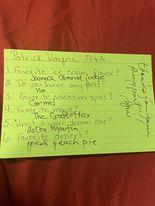 Patrick Wayne Q&A
1. Favorite ice cream flavor?
Jamoca Almond Fudge
2. Do you have any pets?
No
3. Favorite vacation spot?
Carmel
4. Favorite movie?
The Godfather
5. What is your dream car?
Aston Martin
6. Favorite dessert?
fresh peach pie